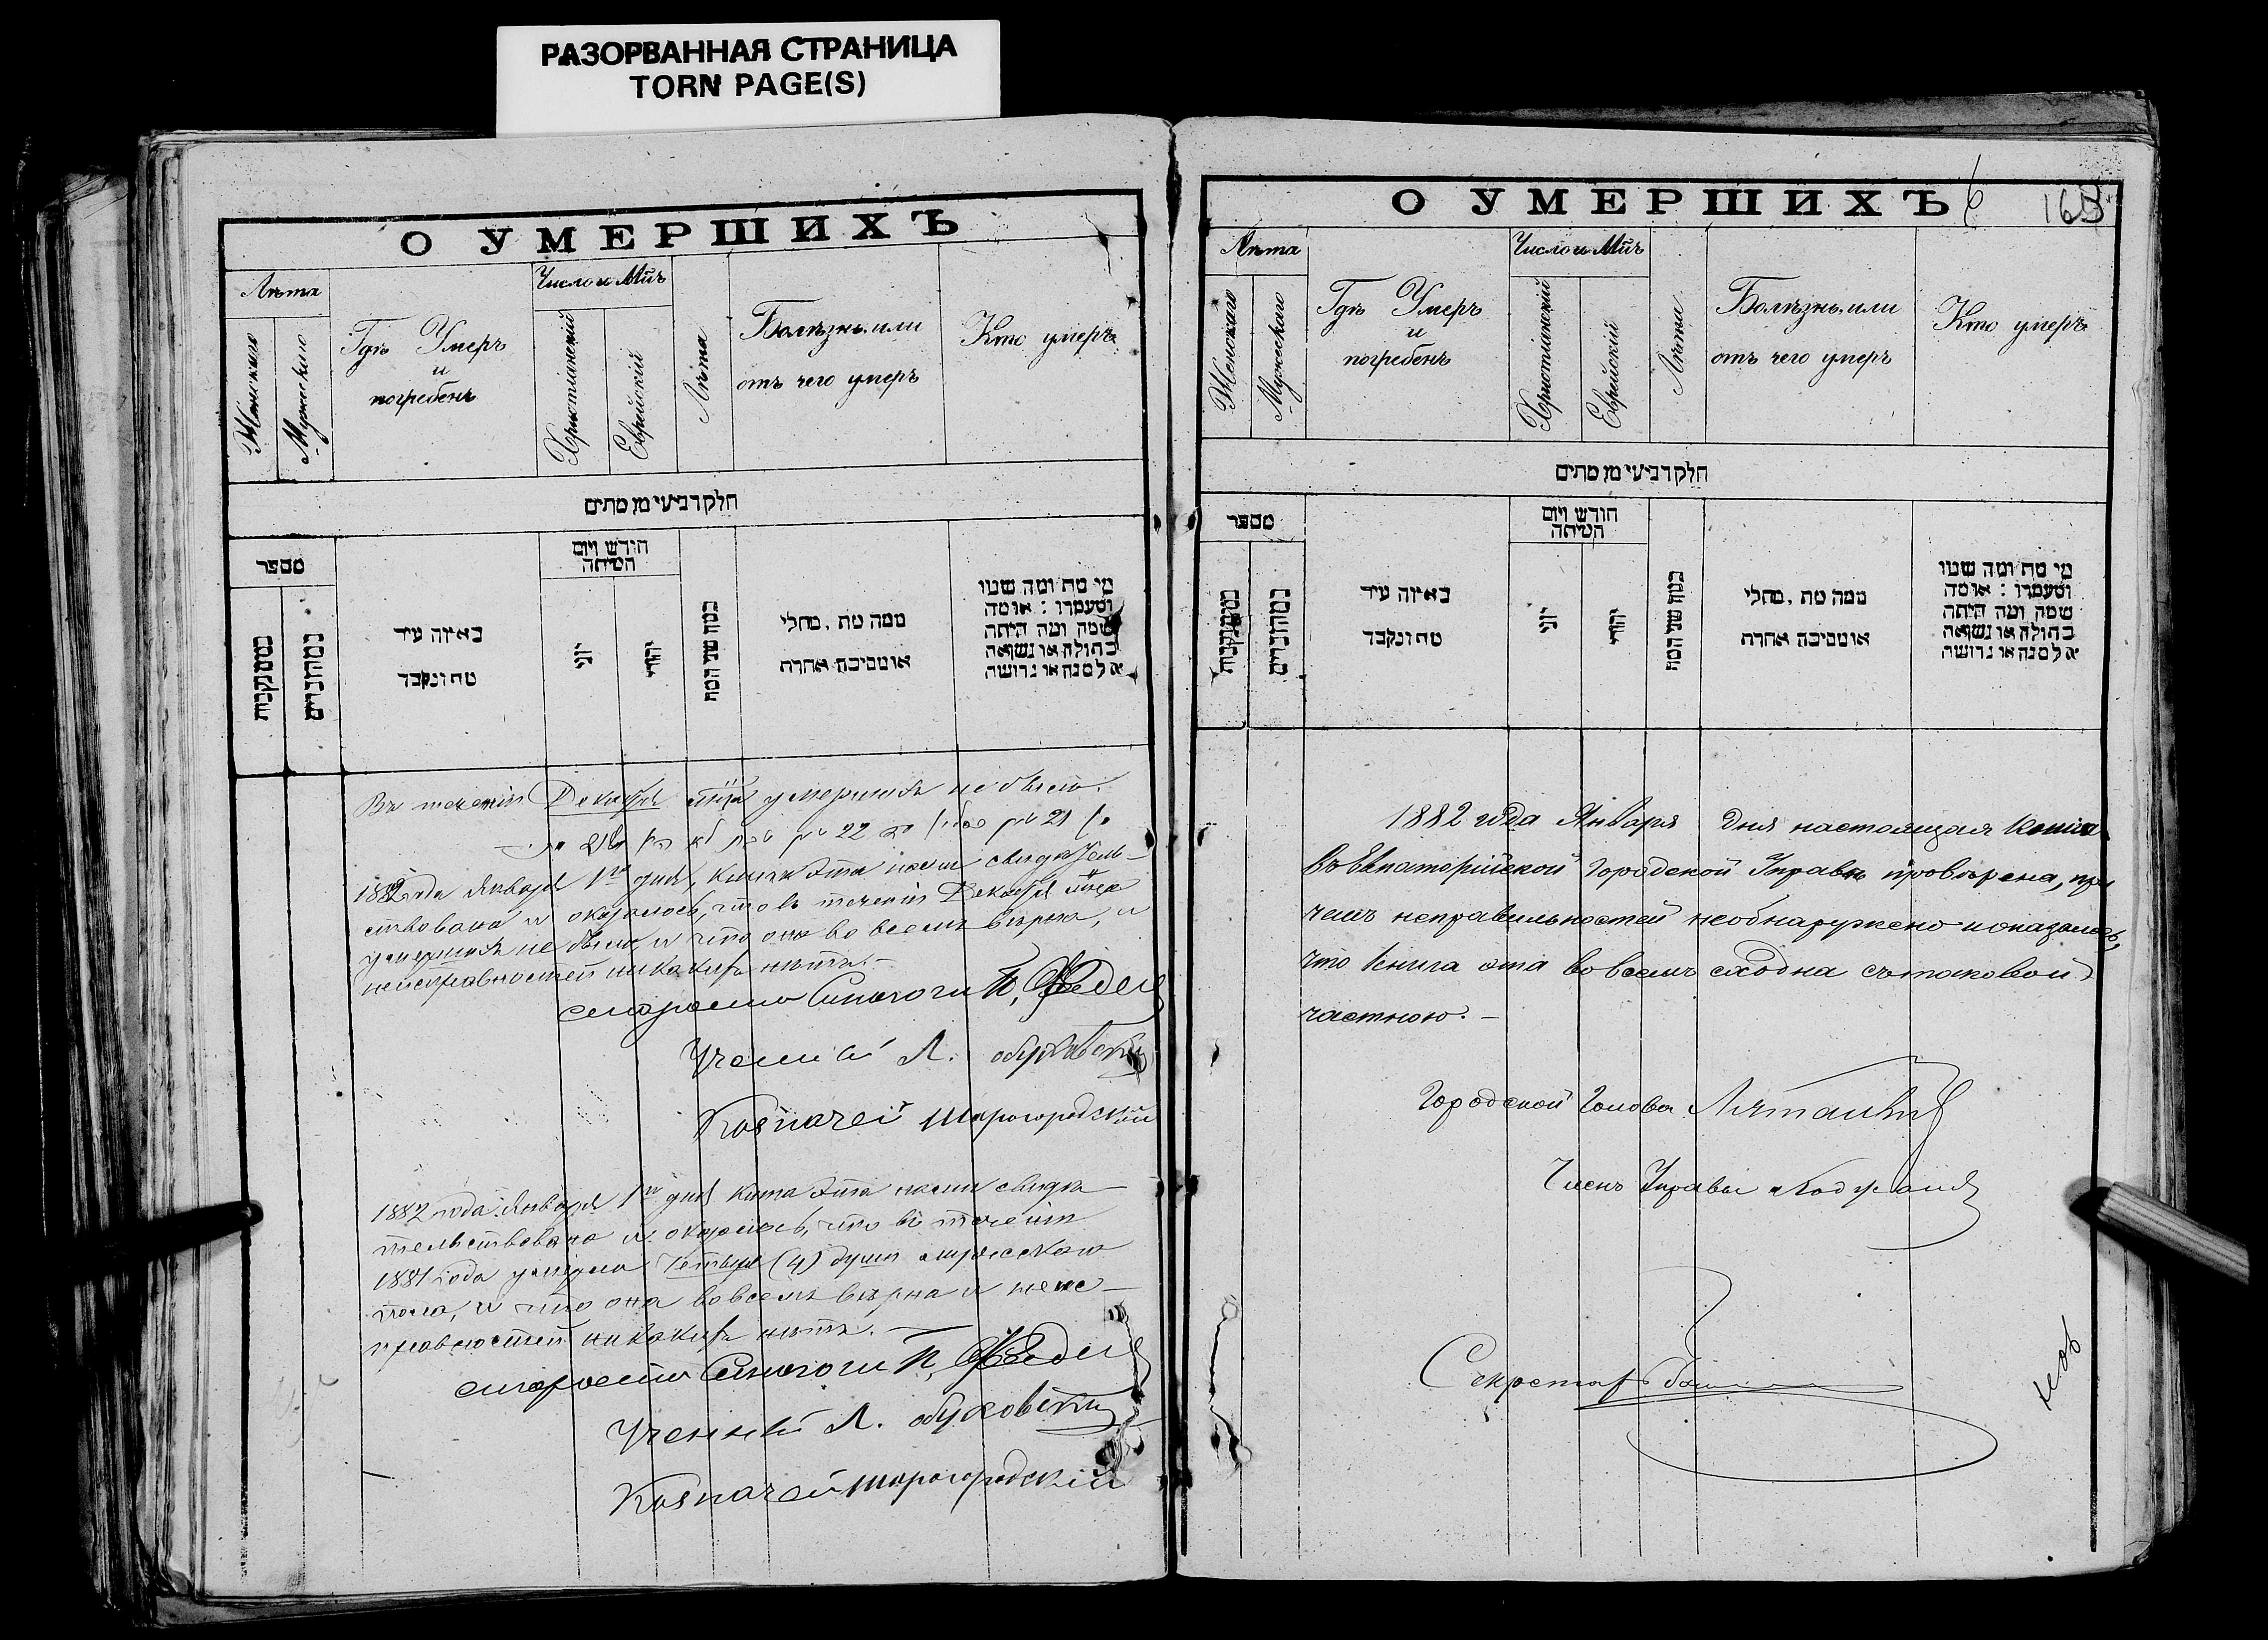 РАЗОРВАННАЯ СТРАНИЦА
TORN PAGE(S)
О УМЕРШИХЪ
Лѣта
Женскаго
Мужескаго
Гдѣ Умеръ
и
погребенъ
Число и Мцъ
Христіанскій
Еврейскій
Лѣта
Болѣзнь или
отъ чего умеръ
Кто умеръ
חלק רביעי מן מתים
מספר
במהנקבות
במהזכרים
באיזה עיר
מת ונקבר
חודש ויום
המיתה
יוני
יהודי
כמה שני המת
ממה מת, מחלי
או מסיבה אחרת
מי מת ומה שמו
ומעמדו: או מה
שמה ומה היתה
בתולה או נשואה
אלמנה או גרושה
Въ теченіи Декабря мца умершихъ не было.
1882 года Января 1го дня, книга эта нами свидетель-
ствована и оказалось, что въ теченіи Декабря мца
умершихъ не было, и что она во всемъ вѣрна, и
неисправностей никакихъ нѣтъ. —
староста Синагоги
Ученый Л.
Казначей Шарогородскій
1882 года Января 1го дня книга эта нами свидѣ-
тельствована и оказалось, что въ теченіи
1881 года умерло Четыре (4) души мужескаго
пола, и что она во всемъ вѣрна и неис-
правностей никакихъ нѣтъ. —
староста Синагоги
Ученый Л.
Казначей Шарогородскій
О УМЕРШИХЪ
6
Лѣта
Женскаго
Мужескаго
Гдѣ Умеръ
и
погребенъ
Число и Мцъ
Христіанскій
Еврейскій
Лѣта
Болѣзнь или
отъ чего умеръ
Кто умеръ
חלק רביעי מן מתים
מספר
במהנקבות
במהזכרים
באיזה עיר
מת ונקבר
חודש ויום
המיתה
יוני
יהודי
כמה שני המת
ממה מת, מחלי
או מסיבה אחרת
מי מת ומה שמו
ומעמדו: או מה
שמה ומה היתה
בתולה או נשואה
אלמנה או גרושה
1882 года Января дня настоящая Книга
въ Евпаторійской Городской Управѣ провѣрена, при
чемъ неправильностей необнаружено и оказалось,
что Книга эта во всемъ сходна съ таковой
частною. —
Городской Голова
Членъ Управы
Секретарь